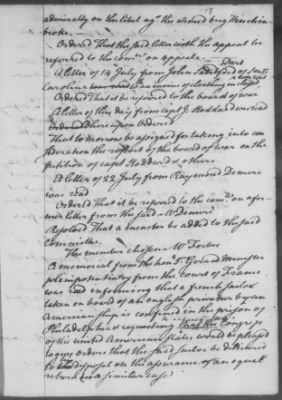 admiralty on the libel agt the armed brig
broke.
Ordered That the said letter with the appeal be
referred to the comee on appeals.
A letter of 14 July from John of South
Carolina was read
Ordered That it be referred to the board of war
A letter of this day from capt J. Stoddard was read
Ordered Whereupon Ordered
That to morrow be assigned for taking into con
sideration the report of the board of war on the
petition of capt Stoddard & others
A letter of 22 July from Raymond Demere
was read
Ordered That it be referred to the comee on a for
mer letter from the said Mr Demeré
Resolved That a member be added to the said
committee.
The member chosen Mr Forbes
A memorial from the honble Sr Gerard minister
plenipotentiary from the Court of France
was read informing that a french sailor
taken on board of an english privateer by an
American ship is confined in the prison of
Philadelphia & requesting that Congress
of the united American States would be pleased
to give orders that the said sailor be delivered
to his disposal on the assurance of an equal
return in a similar case